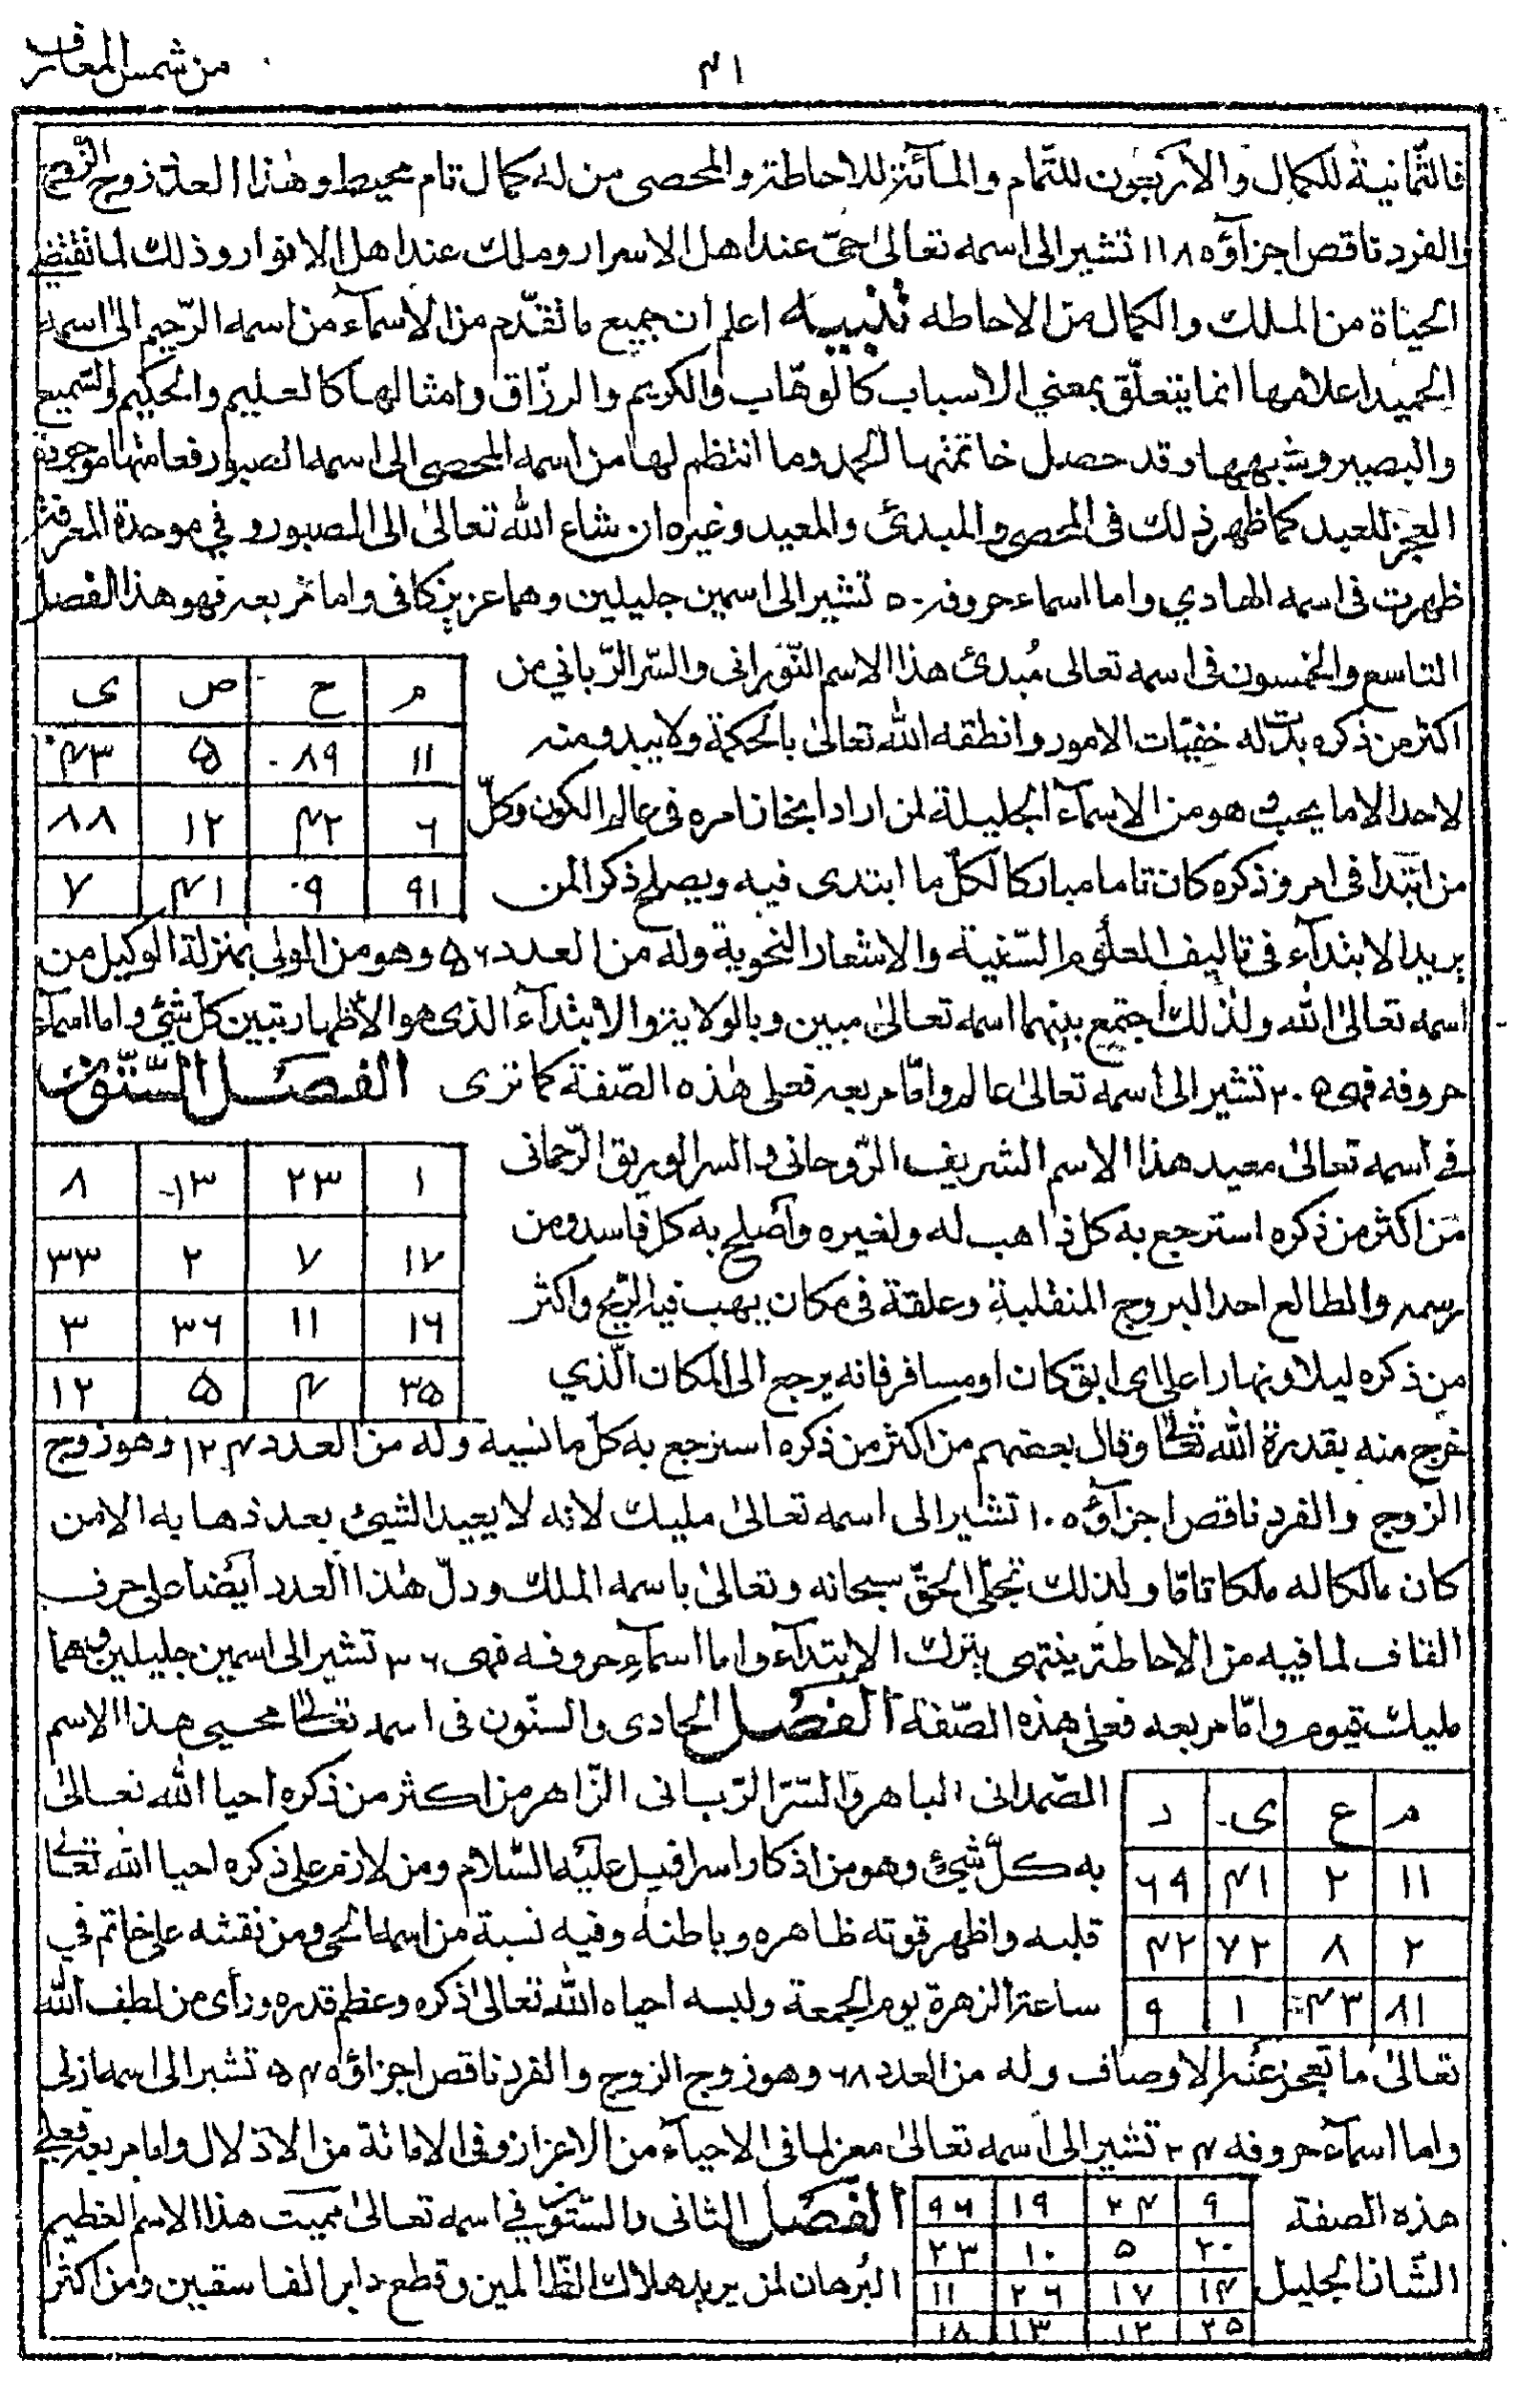 من شمس المعارف
٤١
فالثمانية للكمال والاربعون للتمام والمائة للاحاطة والمحصى من له كمال تام محيط وهذا العدد زوج الزوج
والفرد ناقص اجزاؤه ١١٨ تشير الى اسمه تعالى حق عند اهل الاسرار وملك عند اهل الانوار وذلك لما تقتضيه
الحياة من الملك والكمال من الاحاطه تنبيه اعلم ان جميع ما تقدم من الاسماء من اسمه الرحيم الى اسمه
الحميد اعلامها انما يتعلق بمعني الاسباب كالوهاب والكريم والرزاق وامثالها كالعليم والحكيم والسميع
والبصير وشبهها وقد حصل خاتمتها الحمد وما انتظم لها من اسمه المحصى الى اسمه الصبور فعامتها موجودة
العجز للعبد كما ظهر ذلك فى المحصى والمبدئ والمعيد وغيره ان شاء الله تعالى الى الصبور وفي موحدة المعرفة
ظهرت فى اسمه الهادي واما اسماء حروفه ٥٠ تشير الى اسمين جليلين وهما عزيز كافى واما مربعه فهو هذا الفصل
التاسع والخمسون فى اسمه تعالى مُبدئ هذا الاسم النورانى والسر الرباني من
اكثر من ذكره بدت له خفيات الامور وانطقه الله تعالى بالحكمة ولا يبدو منه
لاحد الا ما يحب وهو من الاسماء الجليلة لمن اراد ايخاز امره فى عالم الكون وكل
من ابتدا فى امر وذكره كان تاما مباركا لكل ما ابتدى فيه ويصلح ذكرا لمن
م ح ص ى
١١ ٨٩ ٥ ٤٣
٦ ٤٢ ١٢ ٨٨
٩١ ٩ ٤١ ٧
يريد الابتداء فى تاليف العلوم السنية والاشعار النحوية وله من العدد ٥٦ وهو من الولى بمنزلة الوكيل من
اسمه تعالى الله ولذلك اجتمع بينهما اسمه تعالى مبين وبالولاية والابتداء الذى هو الاظهار يتبين كل شئ واما اسماء
حروفه فهى ٢٠٥ تشير الى اسمه تعالى عالم واما مربعه فعلى هذه الصفة كما ترى الفصل الستون
فى اسمه تعالى معيد هذا الاسم الشريف الروحانى والسر الوريق الرحمانى
من اكثر من ذكره استرجع به كل ذاهب له ولغيره وأصلح به كل فاسد ومن
رسمه والطالع احد البروج المنقلبة وعلقة فى مكان يهب فيه الريح واكثر
من ذكره ليلا ونهارا على اى ابق كان او مسافر فانه يرجع الى المكان الذي
١ ٢٣ ١٣ ٨
١٧ ٧ ٢ ٣٣
١٦ ١١ ٣٦ ٣
٣٥ ٤ ٥ ١٢
خرج منه بقدرة الله تعالى وقال بعضهم من اكثر من ذكره استرجع به كل ما نسيه وله من العدد ١٢٤ وهو زوج
الزوج والفرد ناقص اجزاؤه ١٠٠ تشير الى اسمه تعالى مليك لانه لا يعيد الشئ بعد ذهابه الا من
كان مالكا له ملكا تاما ولذلك تجلى الحق سبحانه وتعالى باسمه الملك ودل هذا العدد ايضا على حرف
القاف لما فيه من الاحاطة ينتهى بترك الابتداء واما اسماء حروفه فهى ٣٠٦ تشير الى اسمين جليلين وهما
مليك قيوم واما مربعه فعلى هذه الصفة الفصل الحادى والستون فى اسمه تعالى محيى هذا الاسم
الصمدانى الباهر والسر الربانى الزاهر من اكثر من ذكره احيا الله تعالى
به كل شئ وهو من اذكار اسرافيل عليه السلام ومن لازم على ذكره احيا الله تعالى
قلبه واظهر قوته ظاهره وباطنه وفيه نسبة من اسمه الحى ومن نقشه على خاتم في
ساعة الزهرة يوم الجمعة ولبسه احياه الله تعالى ذكره وعظم قدره ورأى من لطف الله
م ع ى د
١١ ٢ ٤١ ٦٩
٢ ٨ ٧٢ ٤٢
٨١ ٤٣ ١ ٩
تعالى ما تعجز عنه الاوصاف وله من العدد ٦٨ وهو زوج الزوج والفرد ناقص اجزاؤه ٥٤ تشير الى اسمه ازلى
واما اسماء حروفه ٢٤ تشير الى اسمه تعالى معز لما فى الاحياء من الاعزاز وفى الاماتة من الاذلال واما مربعه فعلى
هذه الصفة الفصل الثانى والستون في اسمه تعالى مميت هذا الاسم العظيم
الشان الجليل البرهان لمن يريد هلاك الظالمين وقطع دابر الفاسقين ومن اكثر
٩ ٢٤ ١٩ ٩٦
٢٠ ٥ ١٠ ٢٣
١٤ ١٧ ٢٦ ١١
٢٥ ١٢ ١٣ ١٨